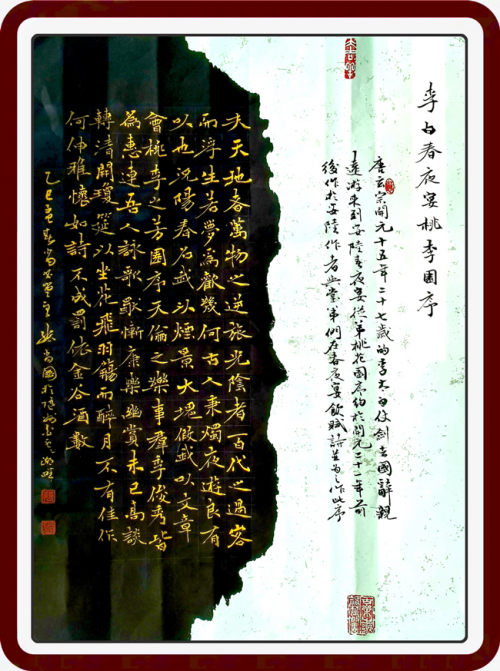 李白春夜宴桃李園序
唐玄宗開元十五年二十七歲的李太白仗劍去國辭親
遠游來到安陸春夜宴從弟桃花園序約於開元二十一年前
後作於安陸作者與堂弟們在春夜宴飲賦詩並為之作此序
夫天地者萬物之逆旅光陰者百代之過客
而浮生若夢為歡幾何古人秉燭夜遊良有
以也況陽春召我以煙景大塊假我以文章
會桃李之芳園序天倫之樂事群季俊秀皆
為惠連吾人詠歌獨慚康樂幽賞未已高談
轉清開瓊筵以坐花飛羽觴而醉月不有佳作
何伸雅懷如詩不成罰依金谷酒數
乙巳